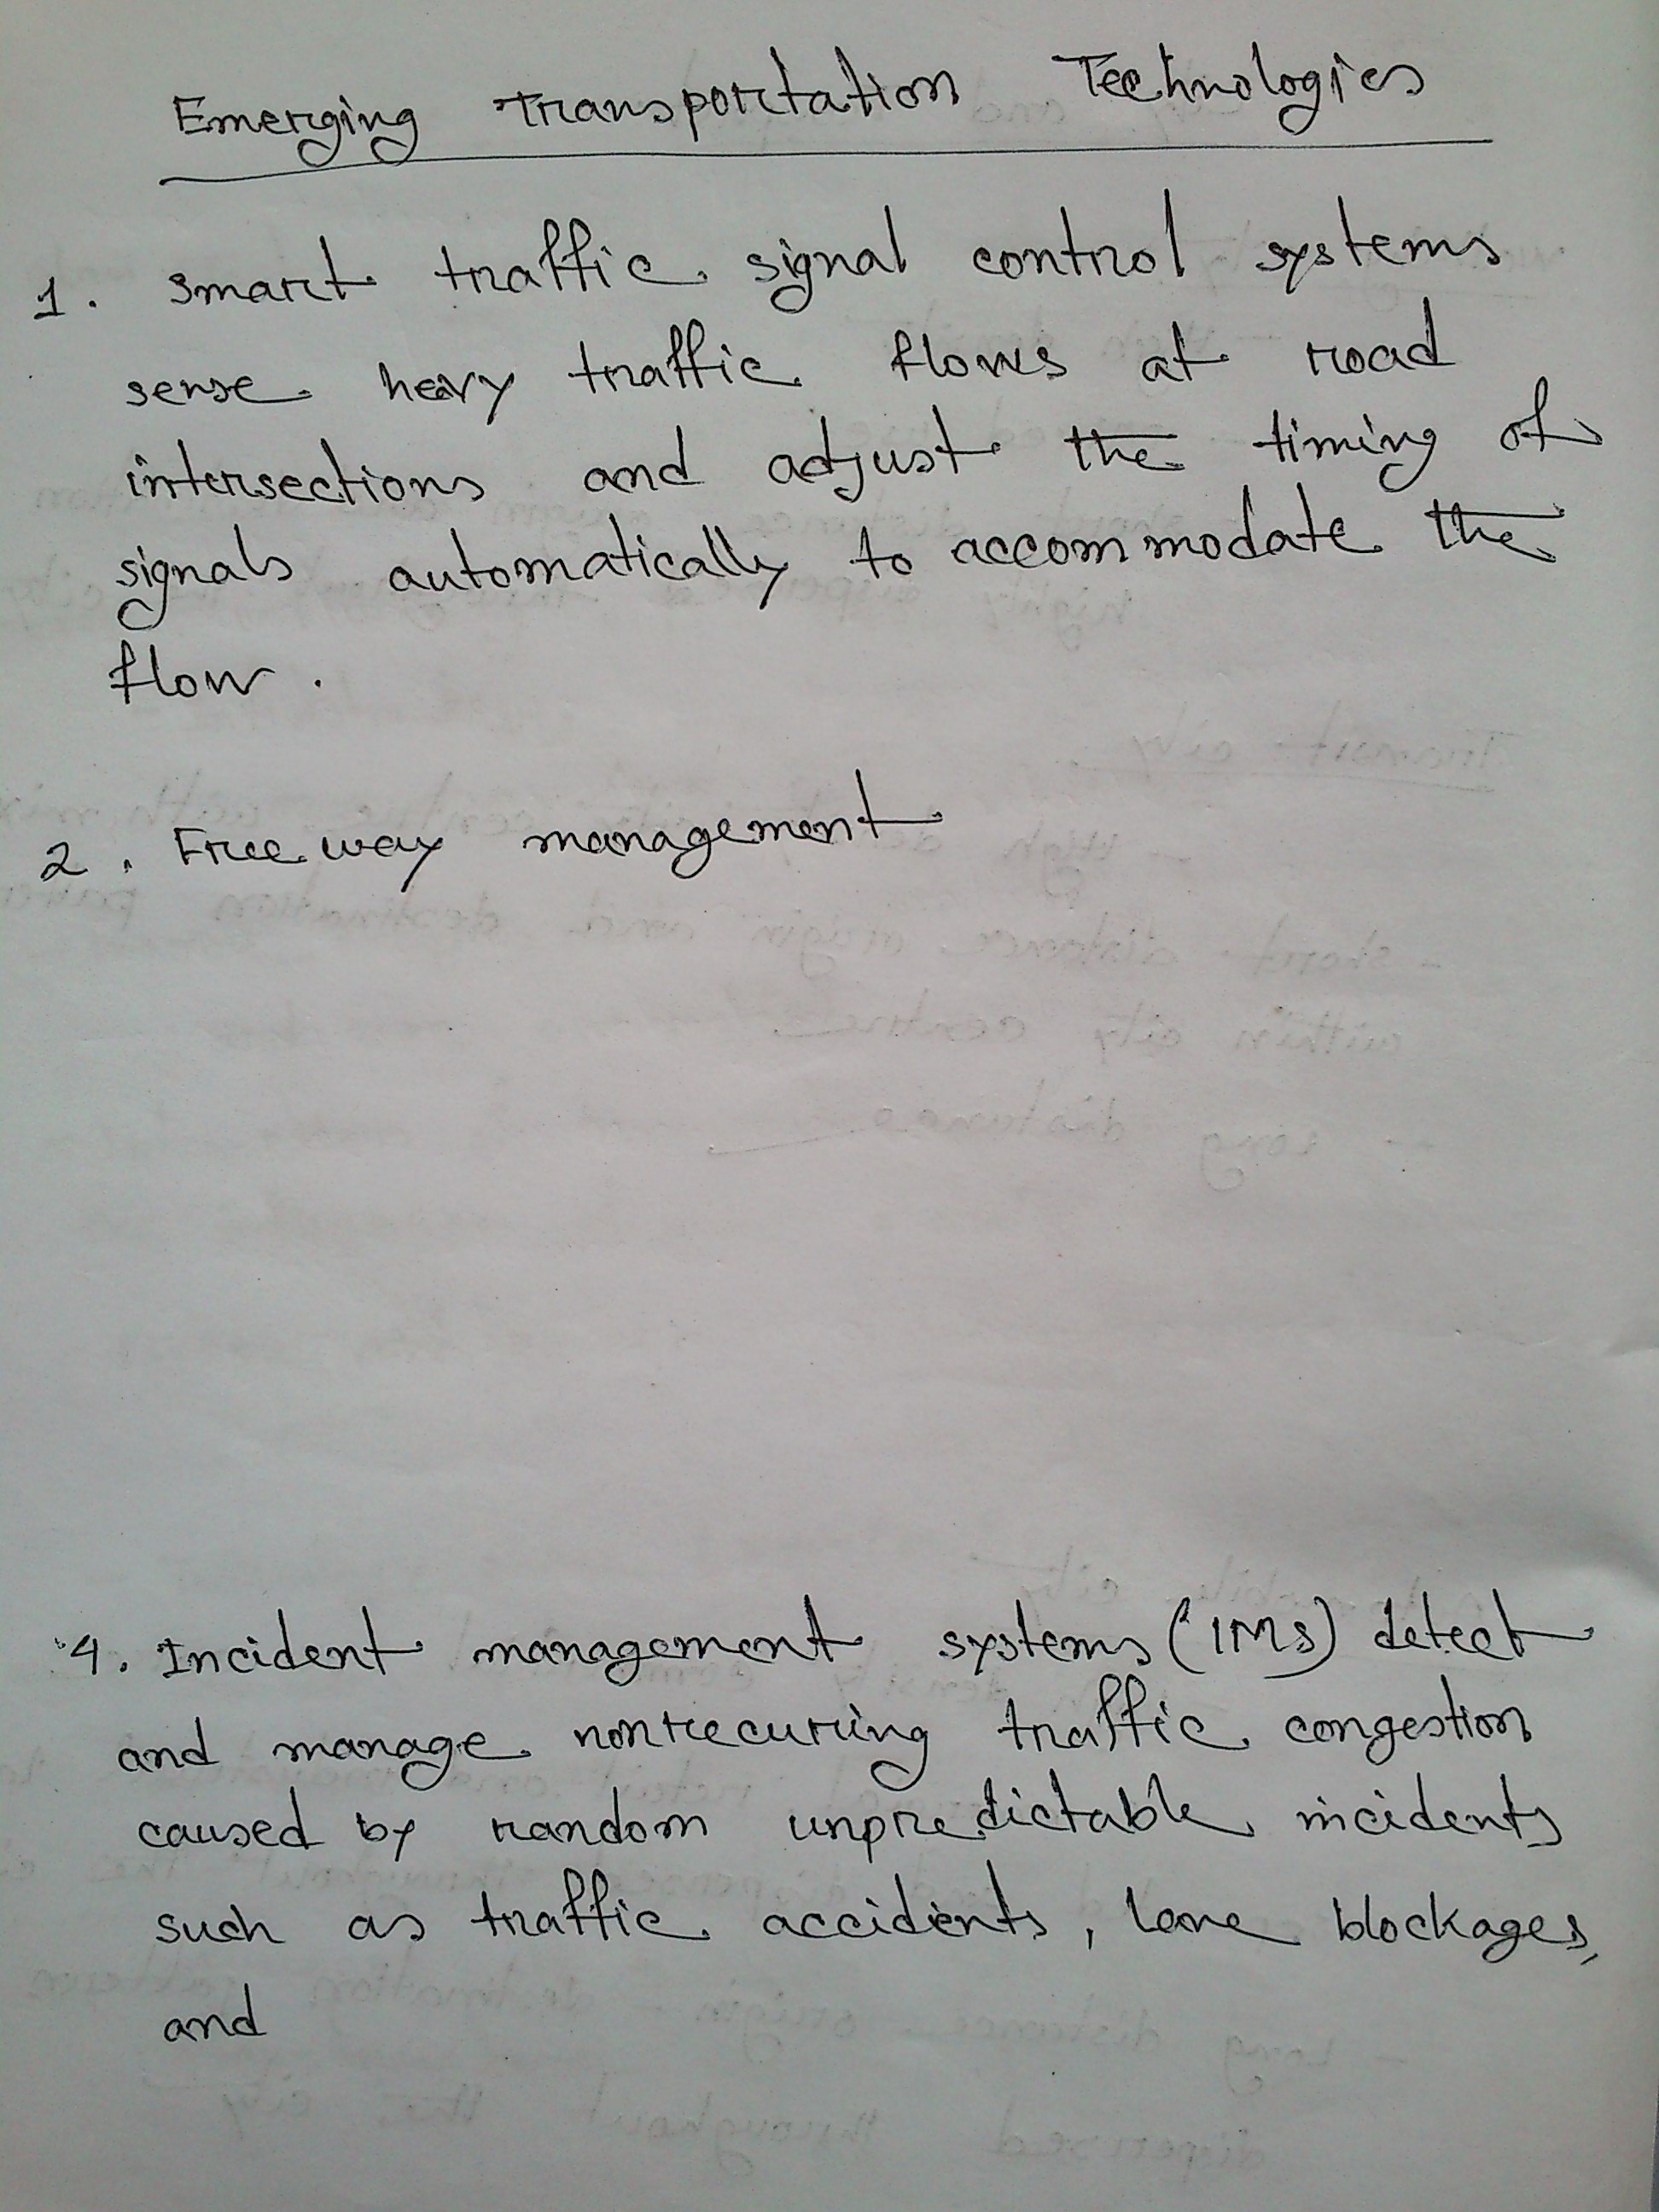 Emerging Transportation Technologies
1. smart traffic signal control systems
sense heavy traffic flows at road
intersections and adjust the timing of
signals automatically to accommodate the
flow.
2. Freeway management
4. Incident management systems (IMS) detect
and manage nonrecuring traffic congestion
caused by random unpredictable incidents
such as traffic accidents, lane blockages,
and